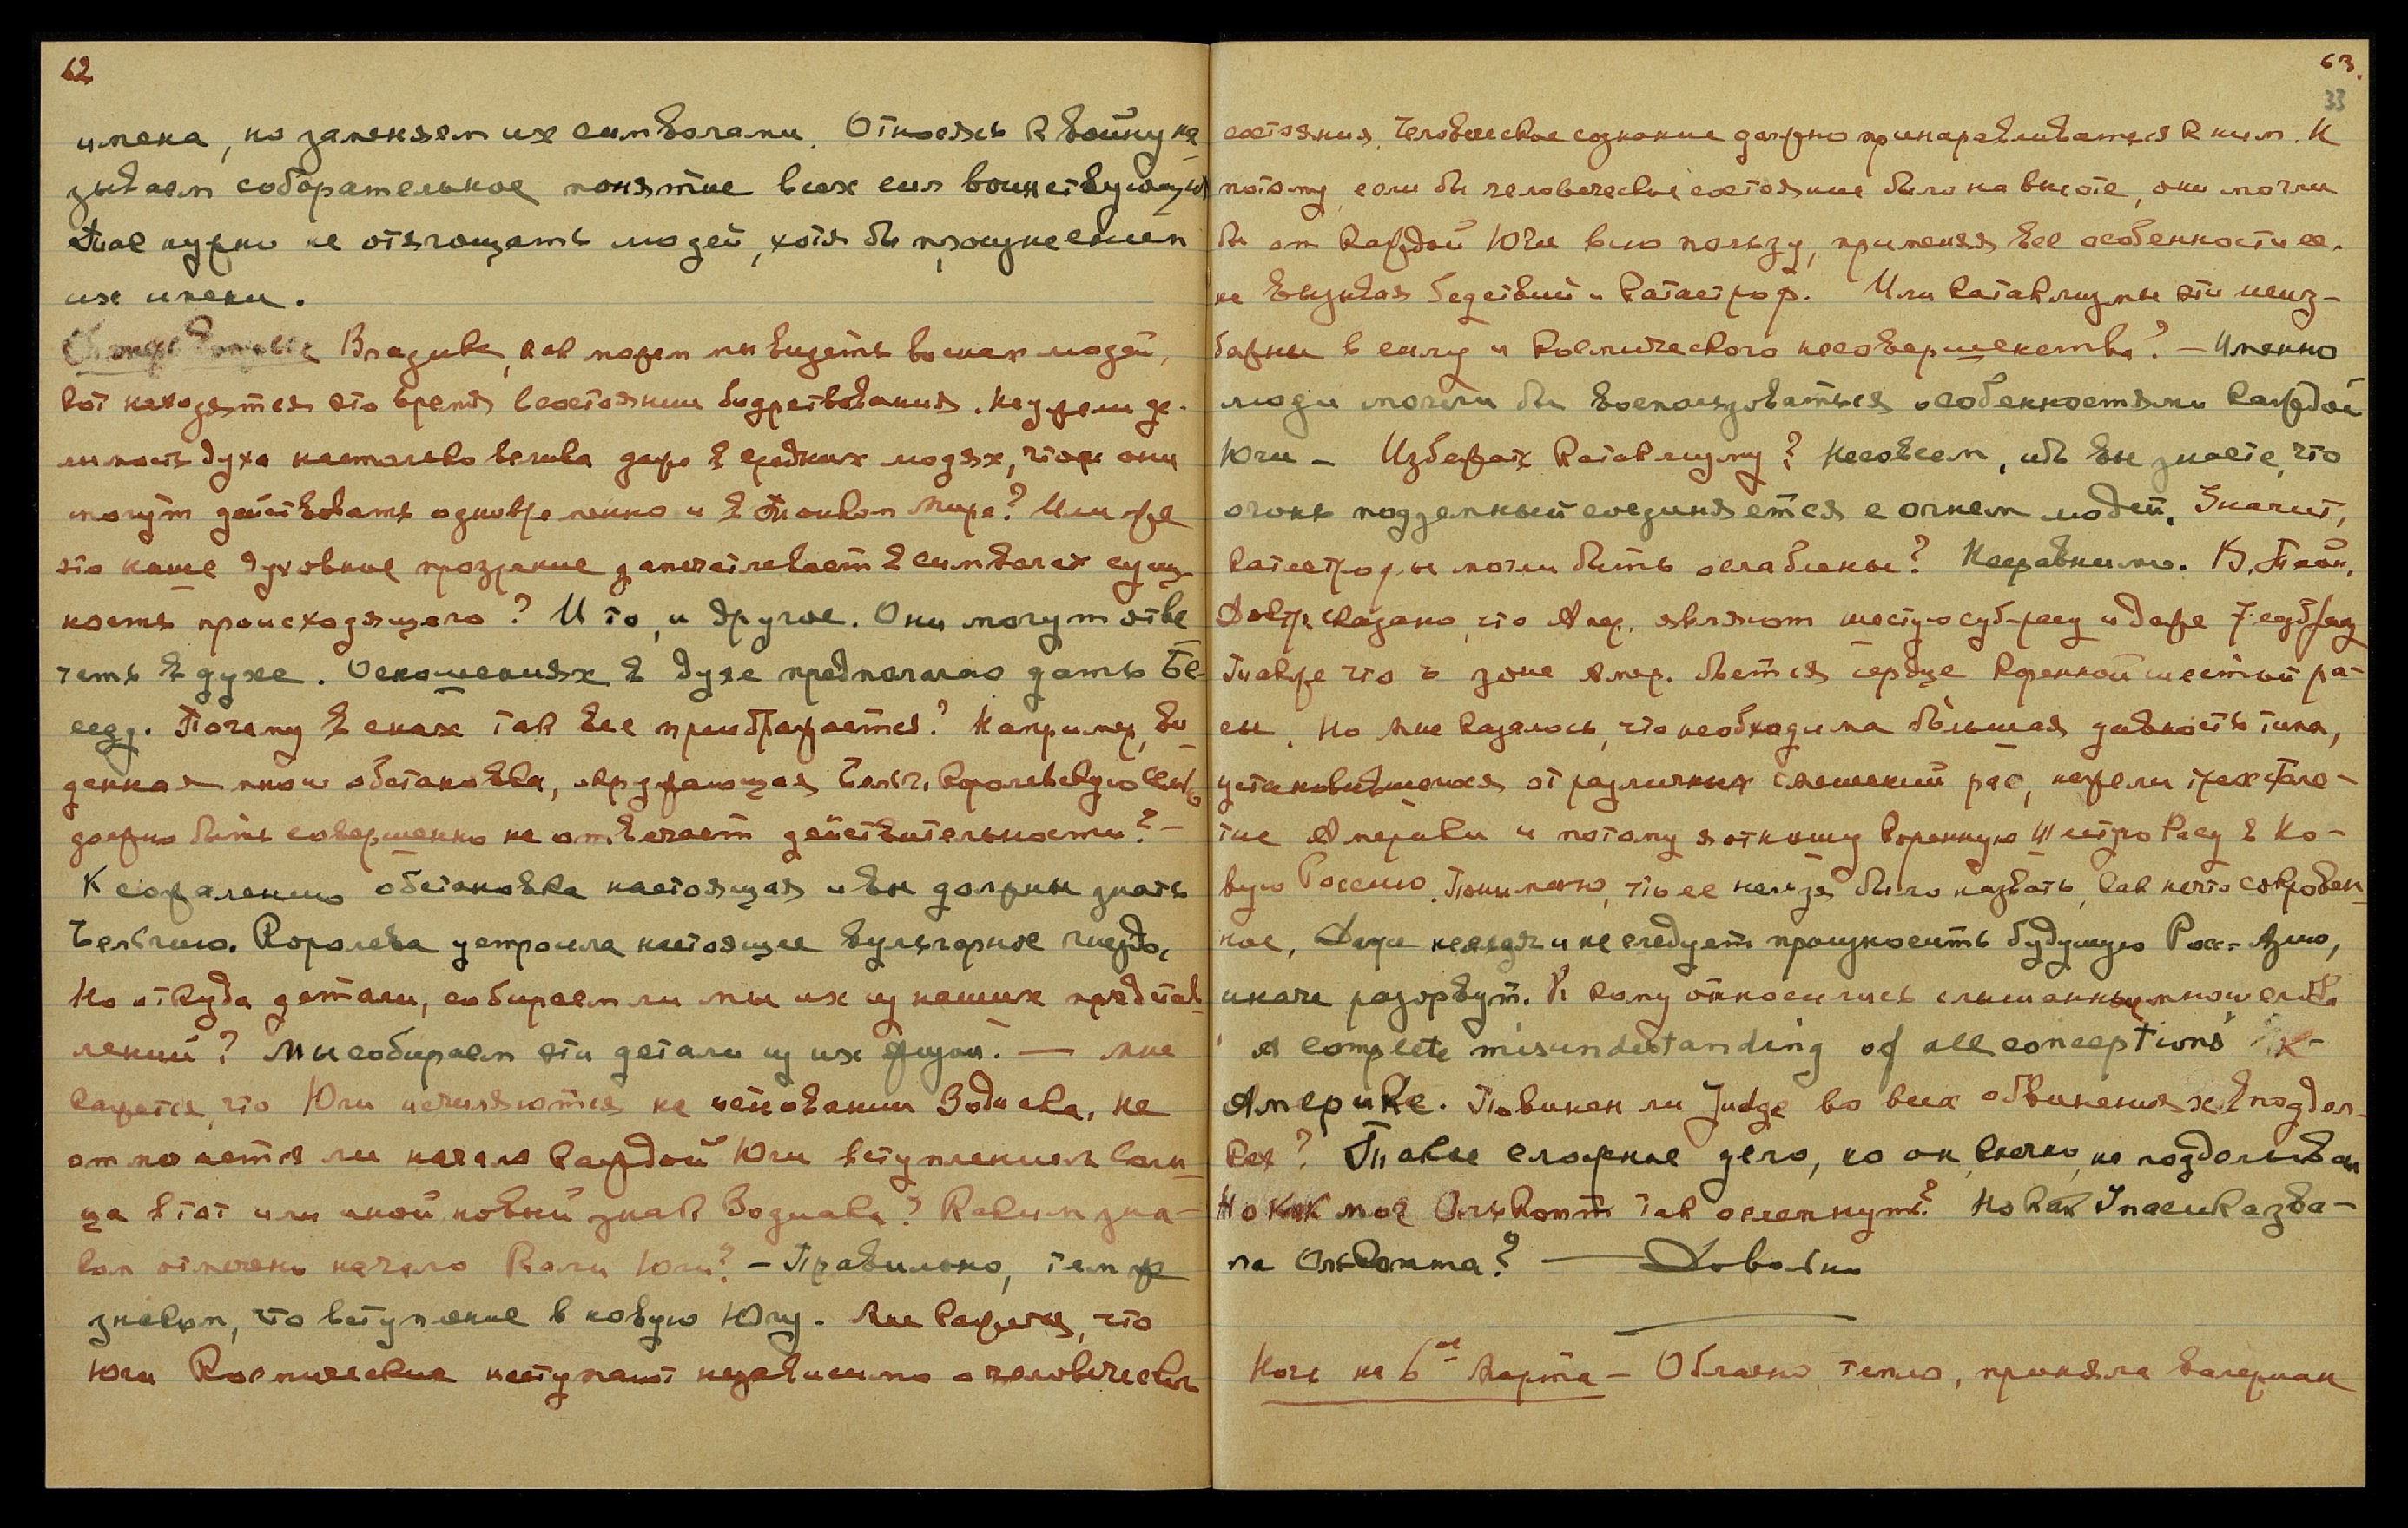 62
имена, но заменяем их символами. Относясь к войну на-
зываем собирательное понятие всех сил воинствующих
Также нужно не отягощать людей, хотя бы произнесением
их имени.
Владыка, как можем мы видеть во снах людей,
кот находятся это время в состоянии бодрствования. Неужели де-
лимость духа настолько велика даже в средних людях, чтобы они
могут действовать одновременно и в Тонком Мире? Или же
это наше духовное прозрение запечатлевает в символах сущ-
ность происходящего? И то, и другое. Они могут отве
тить в духе. О сношениях в духе предполагаю дать Бе-
сед. Почему в снах так все преображается? Например, ви-
денная мною обстановка, окружающая Бельг. Королевскую семью
должно быть совершенно не отвечает действительности? –
К сожалению обстановка настоящая и вы должны знать
Бельгию. Королева устроила настоящее вульгарное гнездо.
Но откуда детали, собираем ли мы их из наших представ-
лений? Мы собираем эти детали из их жизни. — Мне
кажется, что Юги исчисляются на основании Зодиака. Не
отмечается ли начало каждой Юги вступлением Солн-
ца в тот или иной новый знак Зодиака? Каким зна-
ком отмечено начало Кали Юги? – Правильно, тем же
знаком, что вступление в новую Югу. Мне кажется, что
Юги Космические наступают независимо о человеческ
63.
33
состояния. Человеческое сознание должно принаравливаться к ним. И
потому если бы человеческое состояние было на высоте, они могли
бы от каждой Юги всю пользу, применяя все особенности ее.
не вызывая бедствий и катастроф. Или катаклизмы эти неиз-
бежны в силу и космического несовершенства? – Именно
люди могли бы воспользоваться особенностями каждой
Юги – Избежать катаклизму? Не совсем, ибо вы знаете, что
огонь подземный соединяется с огнем людей. Значит,
катастрофы могли быть ослаблены? Несравнимо. В Тайн.
Доктр. сказано, что Амер. являют шестую субрасу и даже 7
Также что в зоне Амер. бьется сердце коренной шестой ра-
сы. Но мне казалось, что необходима большая давность типа,
установившегося от различных смешений рас, нежели трехстоле-
тие Америки и потому я отношу коренную Шестую Расу в Но-
вую Россию. Понимаю, что ее нельзя было назвать, как нечто сокровен-
ное, Даже нельзя и не следует произносить будущую Рос-Азию,
иначе разорвут. К кому относились слышанные мною слова
"A complete misunderstanding of all conceptions" К-
Америке. Повинен ли Judge во всех обвинениях в поддел-
ках? Такое сложное дело, но он, конечно, не подделывал
Но как мог Олькотт так ослепнуть? Но как Упасика зва-
ла Олькотта? — Довольно
Ночь на 6ое Марта – Облачно, тепло, приняла валериан